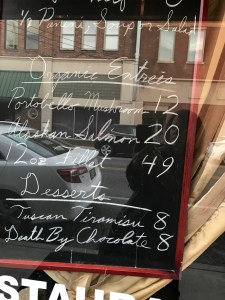 ½ Panini, Soup or Salad
Organic Entreés
Portobello Mushroom 12
Alaskan Salmon 20
20z Fillet 49
Desserts
Tuscan Tiramisu 8
Death By Chocolate 8
STAURA